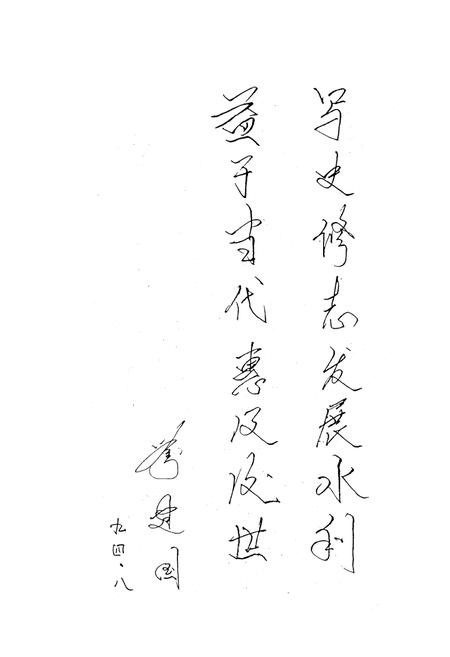 写史修志发展水利
益于当代惠及后世
建国
九四.八